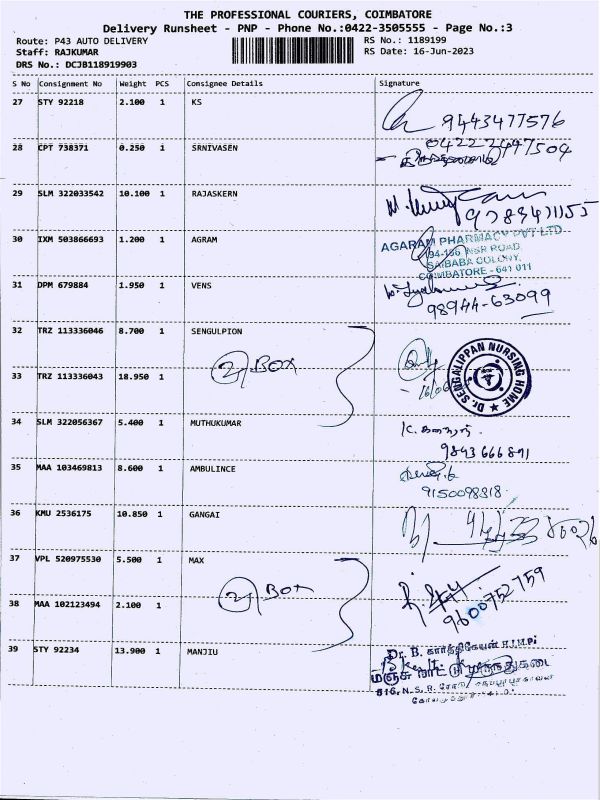 THE PROFESSIONAL COURIERS, COIMBATORE
Delivery Runsheet - PNP - Phone No.:0422-3505555 - Page No.:3
Route: P43 AUTO DELIVERY
RS No.: 1189199
Staff: RAJKUMAR
RS Date: 16-Jun-2023
DRS No.: DCJB118919903
S No Consignment No Weight PCS Consignee Details Signature
27 STY 92218 2.100 1 KS
9443477576
28 CPT 738371 0.250 1 SRNIVASEN
29 SLM 322033542 10.100 1 RAJASKERN
30 IXM 503866693 1.200 1 AGRAM
AGARAM PHARMACY PVT LTD
NSR ROAD,
SAIBABA COLONY,
COIMBATORE - 641 011
31 DPM 679884 1.950 1 VENS
98944-63099
32 TRZ 113336046 8.700 1 SENGULPION
2) BOX
Dr. SENGALIPPAN NURSING HOME
33 TRZ 113336043 18.950 1
34 SLM 322056367 5.400 1 MUTHUKUMAR
9843666891
35 MAA 103469813 8.600 1 AMBULINCE
9150098318
36 KMU 2536175 10.850 1 GANGAI
37 VPL 520975530 5.500 1 MAX
2) BOX
9600752759
38 MAA 102123494 2.100 1
39 STY 92234 13.900 1 MANJIU
Dr. B. கார்த்திகேயன் R.I.M.P.
மஞ்சு நாட்டு மருந்துகடை
516, N.S.R. ரோடு,